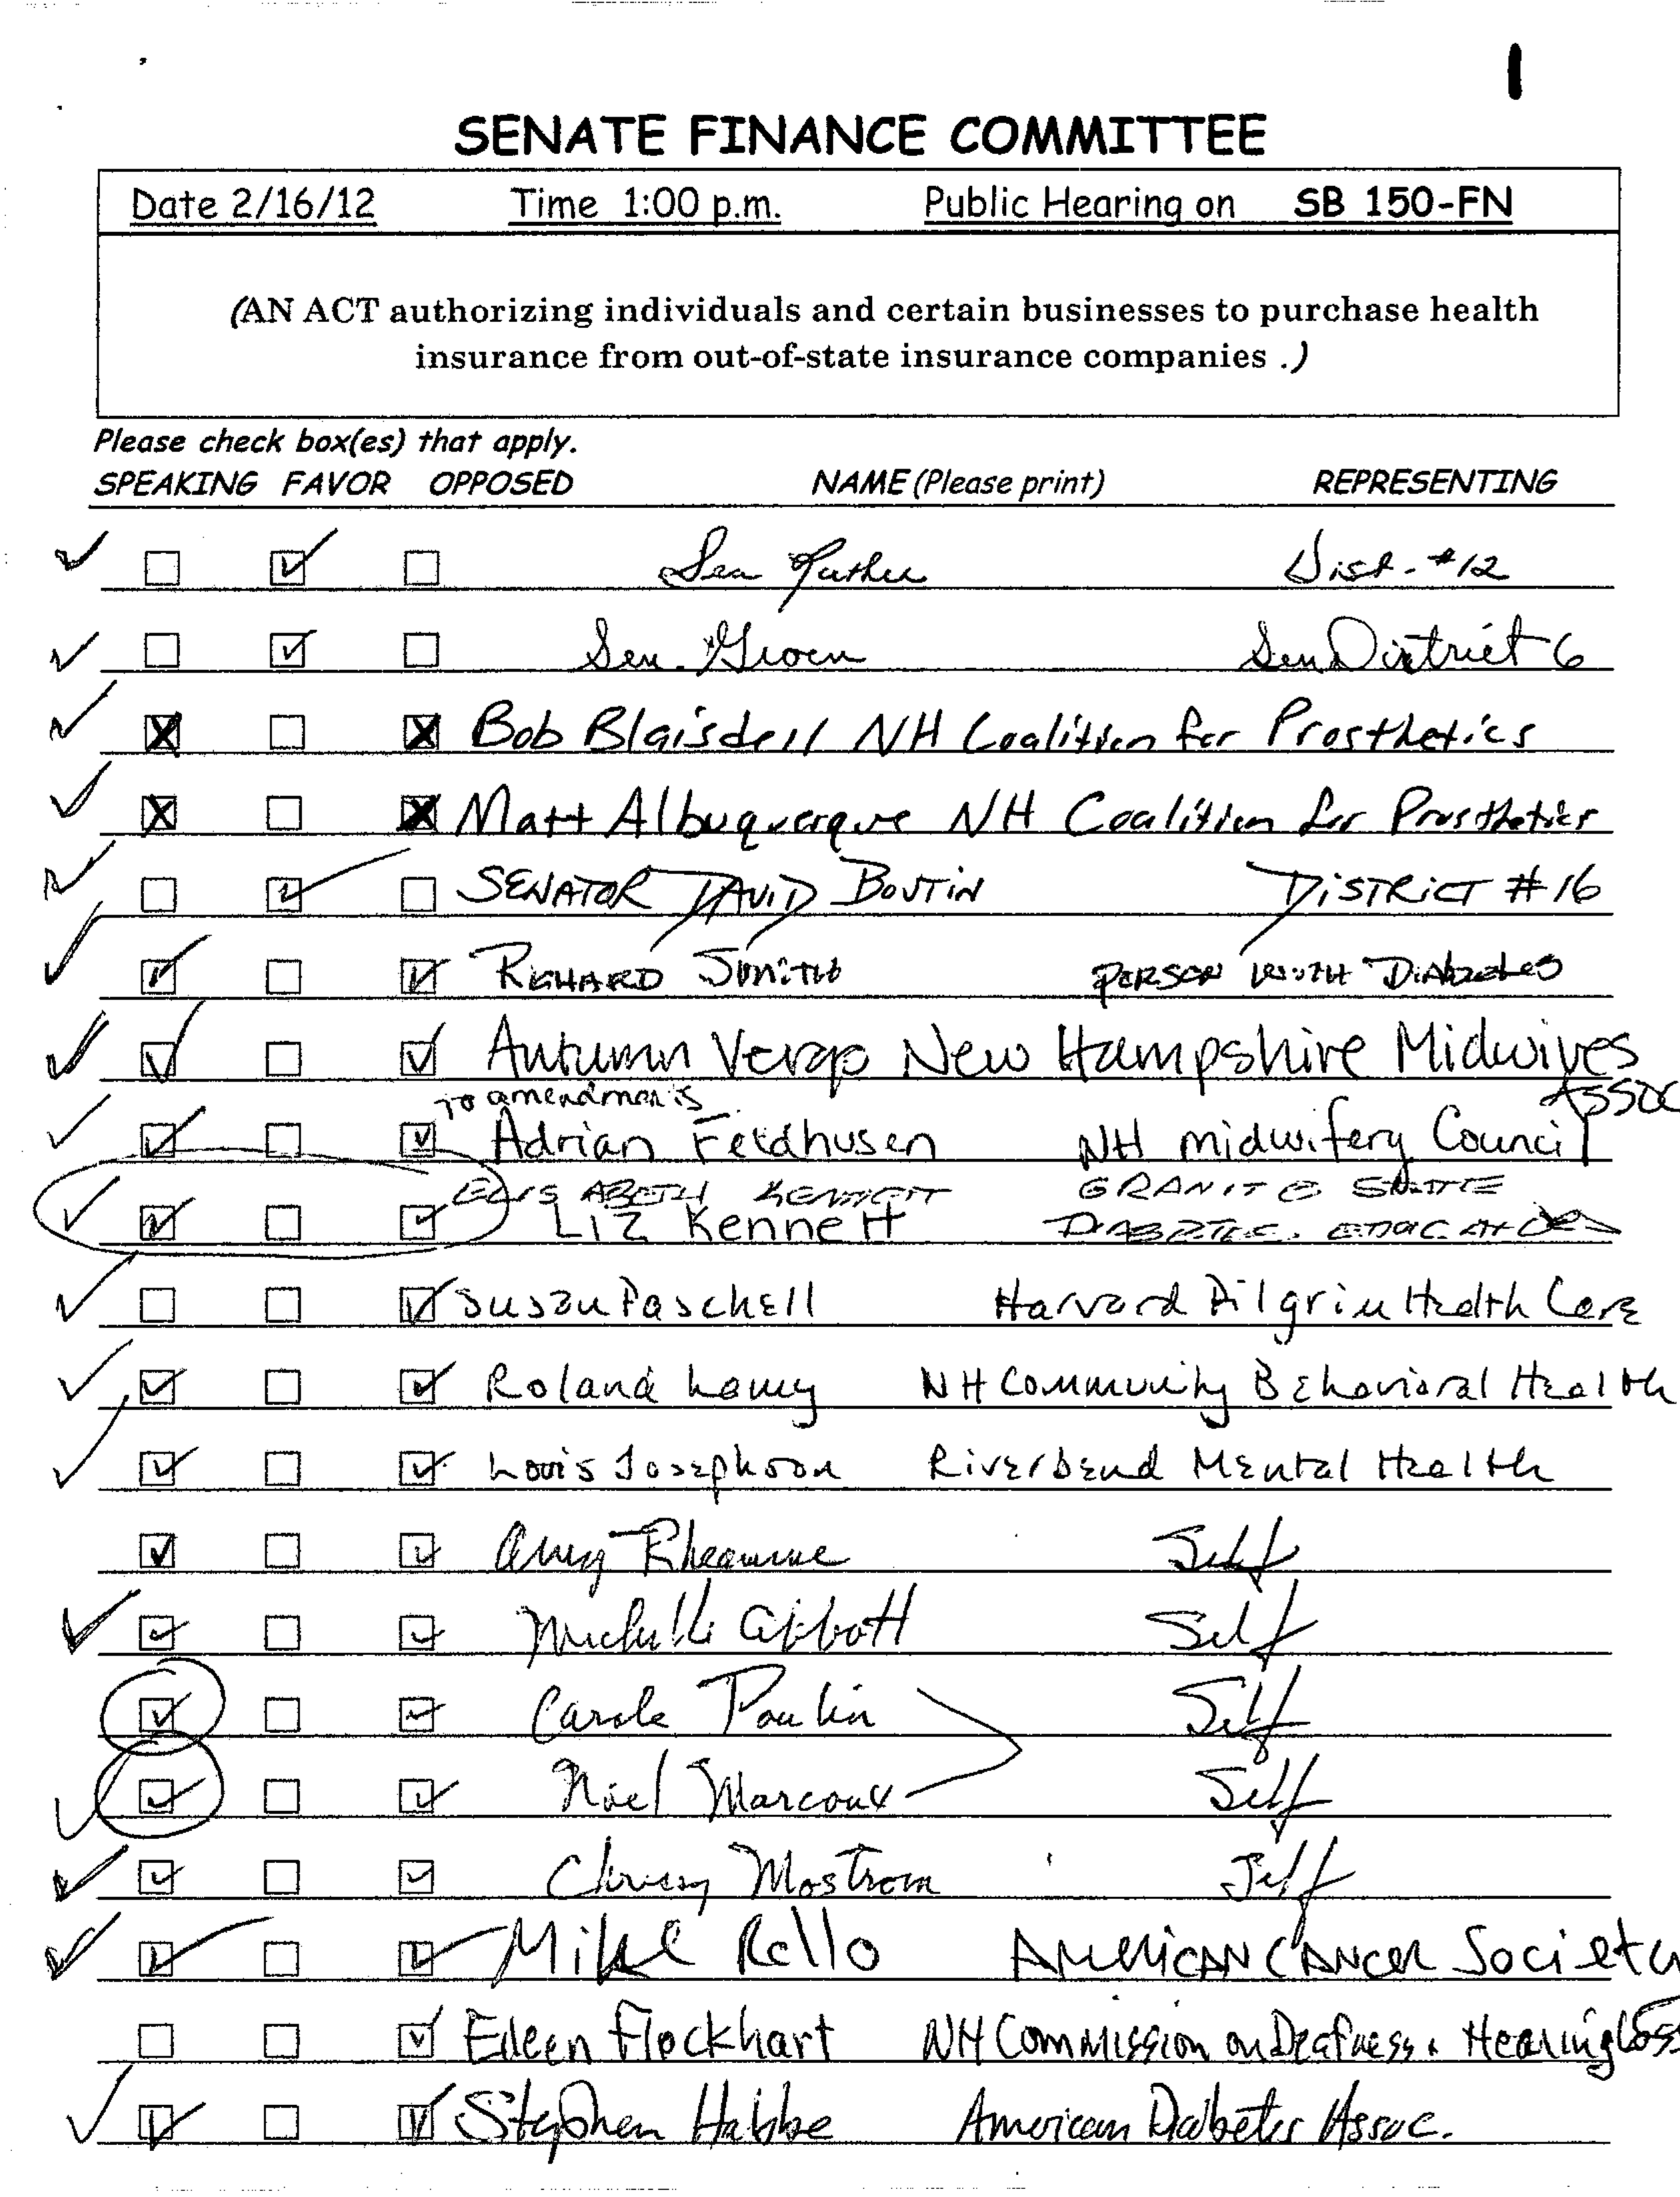 1
SENATE FINANCE COMMITTEE
Date 2/16/12 Time 1:00 p.m. Public Hearing on SB 150-FN
(AN ACT authorizing individuals and certain businesses to purchase health
insurance from out-of-state insurance companies .)
Please check box(es) that apply.
SPEAKING FAVOR OPPOSED NAME (Please print) REPRESENTING
Sen Dist. #12
Sen. Groen Sen District 6
Bob Blaisdell NH Coalition for Prosthetics
Matt Albuquerque NH Coalition for Prosthetics
SENATOR DAVID BOUTIN DISTRICT #16
RICHARD SMITH PERSON WITH DIABETES
Autumn Vergo New Hampshire Midwives
ASSOC
To amendments
Adrian Feldhusen NH midwifery Council
ELISABETH KENNETT GRANITE STATE
LIZ Kennett DIABETES EDUCATORS
Susan Paschell Harvard Pilgrim Health Care
Roland Lamy NH Community Behavioral Health
Louis Josephson Riverbend Mental Health
Amy Rheaume Self
Michelle Abbott Self
Carole Poulin Self
Noel Marcoux Self
Chrissy Mostrom Self
Mike Rollo AMERICAN CANCER Society
Eileen Flockhart NH Commission on Deafness & Hearing loss
Stephen Habbe American Diabetes Assoc.